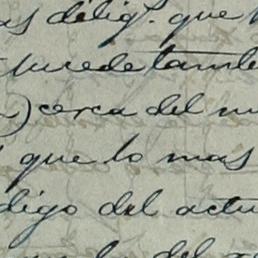 as dilig.s que
sucede tambie
) cerca del m
que lo mas
digo del actu
del